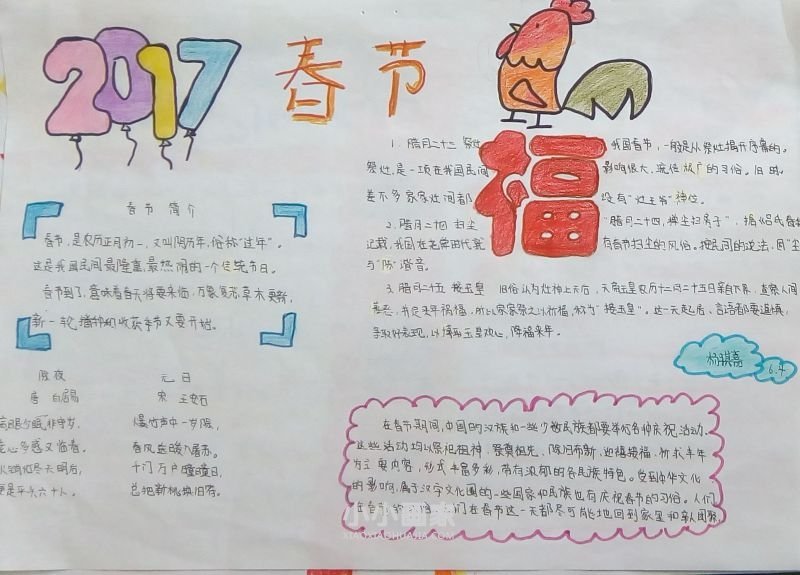 2017 春节
春节 简介
春节,是农历正月初一,又叫阴历年,俗称“过年”。
这是我国民间最隆重、最热闹的一个传统节日。
春节到了,意味着春天将要来临,万象复苏草木更新,
新一轮播种和收获季节又要开始。
除夜
唐 白居易
病眠夕眠非守岁,
老心多感又临春。
火销灯尽天明后,
便是平头六十人。
元日
宋 王安石
爆竹声中一岁除,
春风送暖入屠苏。
千门万户曈曈日,
总把新桃换旧符。
福
1. 腊月二十三 祭灶 我国春节,一般是从祭灶揭开序幕的。
祭灶,是一项在我国民间 影响很大、流传极广的习俗。旧时,
差不多家家灶间都 设有“灶王爷”神位。
2. 腊月二十四 扫尘 “腊月二十四,掸尘扫房子”,据《吕氏春秋
记载,我国在尧舜时代就 有春节扫尘的风俗。把民间的说法,因“尘
与“陈”谐音。
3. 腊月二十五 接玉皇 旧俗认为灶神上天后,天帝玉皇农历十二月二十五日亲自下界,查察人间
善恶,并定来年祸福,所以家家祭之以祈福,称为“接玉皇”。这一天起居、言语都要谨慎,
争取好表现,以博取玉皇欢心,降福来年。
杨骐亮
6.4
在春节期间,中国的汉族和一些少数民族都要举行各种庆祝活动。
这些活动均以祭祀祖神、祭奠祖先、除旧布新、迎禧接福、祈求丰年
为主要内容,形式丰富多彩,带有浓郁的各民族特色。受到中华文化
的影响,属于汉字文化圈的一些国家和民族也有庆祝春节的习俗。人们
在春节 们在春节这一天都尽可能地回到家里和亲人团聚,
小小画家
XIAOXIAOHUAJIA.COM